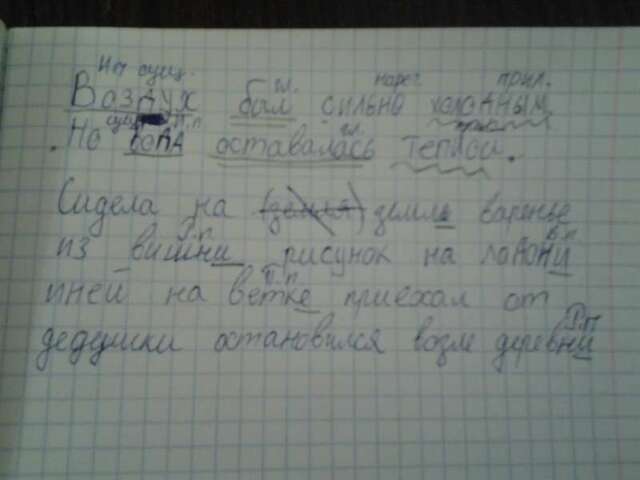 сущ.
Воздух был сильно холодным
гл. нарег. прил.
. Но вода оставалась теплой.
сущ. И.п гл. прил.
Сидела на (земля) земле варенье
из вишни рисунок на ладони
Р.п В.п
иней на ветке приехал от
П.п
дедушки остановился возле деревни
Р.п